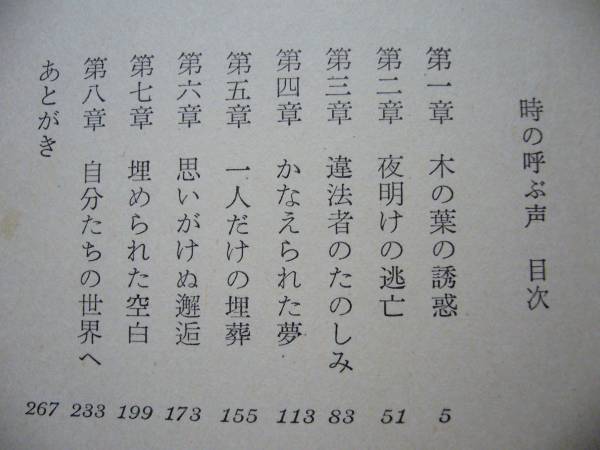 時の呼ぶ声　目次
第一章　木の葉の誘惑　5
第二章　夜明けの逃亡　51
第三章　違法者のたのしみ　83
第四章　かなえられた夢　113
第五章　一人だけの埋葬　155
第六章　思いがけぬ邂逅　173
第七章　埋められた空白　199
第八章　自分たちの世界へ　233
あとがき　267